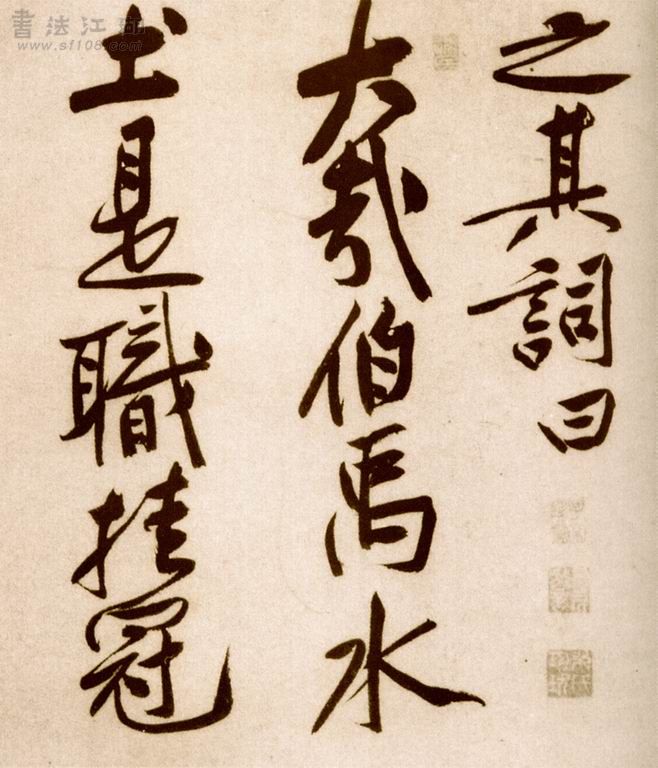 之其詞曰
大哉伯禹水
土是職挂冠
書法江湖
www.sf108.com